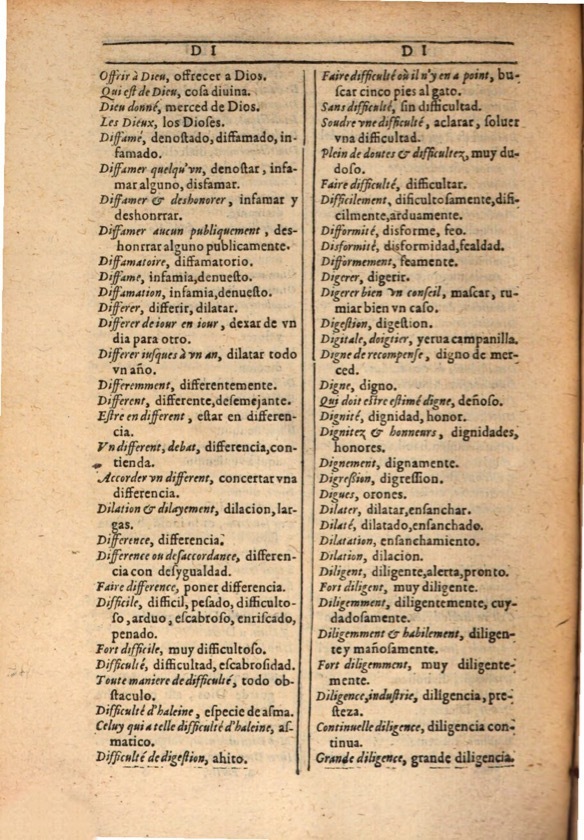 D I
Offrir à Dieu, offrecer a Dios.
Qui eſt de Dieu, coſa diuina.
Dieu donné, merced de Dios.
Les Dieux, los Dioſes.
Diffamé, denoſtado, diffamado, in-
famado.
Diffamer quelqu'vn, denoſtar, infa-
mar alguno, disfamar.
Diffamer & deshonorer, infamar y
deshonrrar.
Diffamer aucun publiquement, des-
honrrar alguno publicamente.
Diffamatoire, diffamatorio.
Diffame, infamia, denueſto.
Diffamation, infamia, denueſto.
Differer, differir, dilatar.
Differer de iour en iour, dexar de vn
dia para otro.
Differer iuſques à vn an, dilatar todo
vn año.
Differemment, differentemente.
Different, differente, deſemejante.
Eſtre en different, eſtar en differen-
cia.
Vn different, debat, differencia, con-
tienda.
Accorder vn different, concertar vna
differencia.
Dilation & dilayement, dilacion, lar-
gas.
Difference, differencia.
Difference ou deſaccordance, differen-
cia con deſygualdad.
Faire difference, poner differencia.
Difficile, difficil, peſado, difficulto-
ſo, arduo, eſcabroſo, enriſcado,
penado.
Fort difficile, muy difficultoſo.
Difficulté, difficultad, eſcabroſidad.
Toute maniere de difficulté, todo ob-
ſtaculo.
Difficulté d'haleine, eſpecie de aſma.
Celuy qui a telle difficulté d'haleine, aſ-
matico.
Difficulté de digeſtion, ahito.
D I
Faire difficulté où il n'y en a point, bu-
ſcar cinco pies al gato.
Sans difficulté, ſin difficultad.
Soudre vne difficulté, aclarar, ſoluer
vna difficultad.
Plein de doutes & difficultez, muy du-
doſo.
Faire difficulté, difficultar.
Difficilement, dificultoſamente, difi-
cilmente, arduamente.
Difformité, disforme, feo.
Disformité, disformidad, fealdad.
Difformement, feamente.
Digerer, digerir.
Digerer bien vn conſeil, maſcar, ru-
miar bien vn caſo.
Digeſtion, digeſtion.
Digitale, doigtier, yerua campanilla.
Digne de recompenſe, digno de mer-
ced.
Digne, digno.
Qui doit eſtre eſtimé digne, deñoſo.
Dignité, dignidad, honor.
Dignitez & honneurs, dignidades,
honores.
Dignement, dignamente.
Digreſſion, digreſſion.
Digues, orones.
Dilater, dilatar, enſanchar.
Dilaté, dilatado, enſanchado.
Dilatation, enſanchamiento.
Dilation, dilacion.
Diligent, diligente, alerta, pronto.
Fort diligent, muy diligente.
Diligemment, diligentemente, cuy-
dadoſamente.
Diligemment & habilement, diligen-
te y mañoſamente.
Fort diligemment, muy diligente-
mente.
Diligence, induſtrie, diligencia, pre-
ſteza.
Continuelle diligence, diligencia con-
tinua.
Grande diligence, grande diligencia.